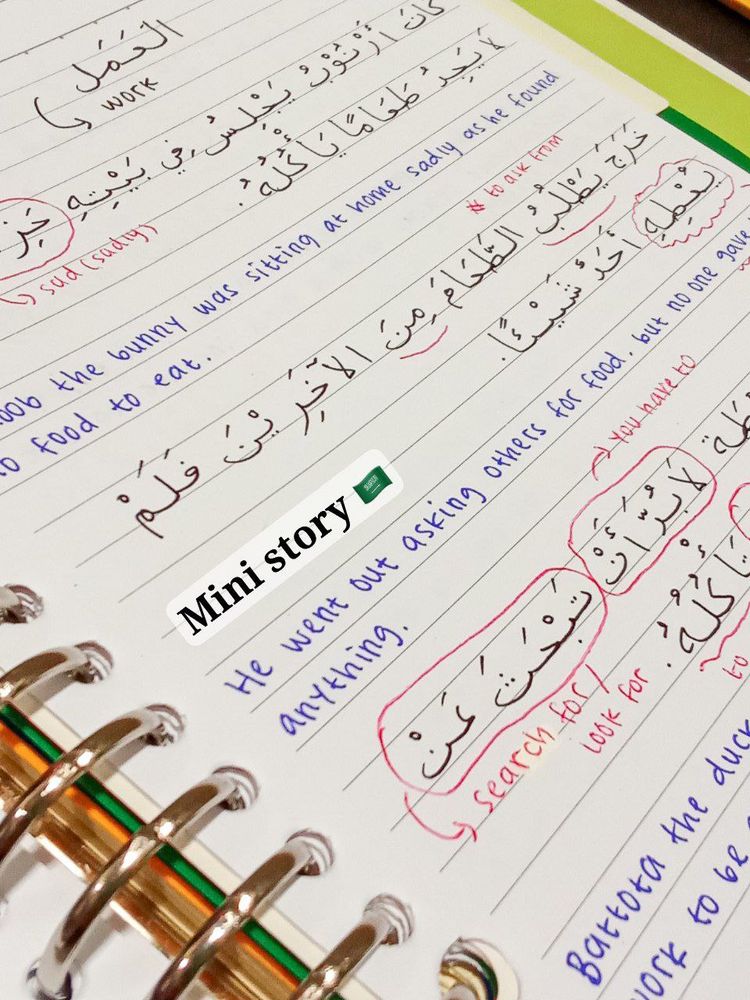 العَمَل
work
كَانَ أَرْنُوْبُ يَجْلِسُ فِي بَيْتِهِ
sad (sadly)
لَا يَجِدُ طَعَامًا يَأْكُلُهُ.
the bunny was sitting at home sadly as he found
food to eat.
* to ask from
خَرَجَ يَطْلُبُ الطَّعَامَ مِنَ الآخَرِيْنَ فَلَمْ
يُعْطِهِ أَحَدٌ شَيْئًا.
Mini story
He went out asking others for food. but no one gave
anything.
you have to
لَا بُدَّ أَنْ تَبْحَثَ عَنْ
search for /
look for
تَأْكُلُهُ.
to
Battota the duck
work to be